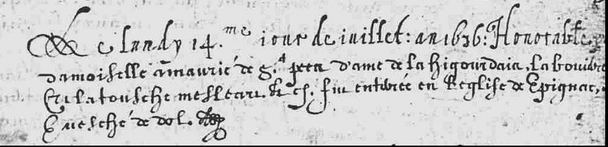 Le lundy 14.me iour de iuillet: an 1636: Honorable
damoiselle amaurie de St. pern dame de la higourdaie, la bouëxie
Et la tousche mesleart &ct. fut enterée en leglise de Epignac,
Evesché de dol.